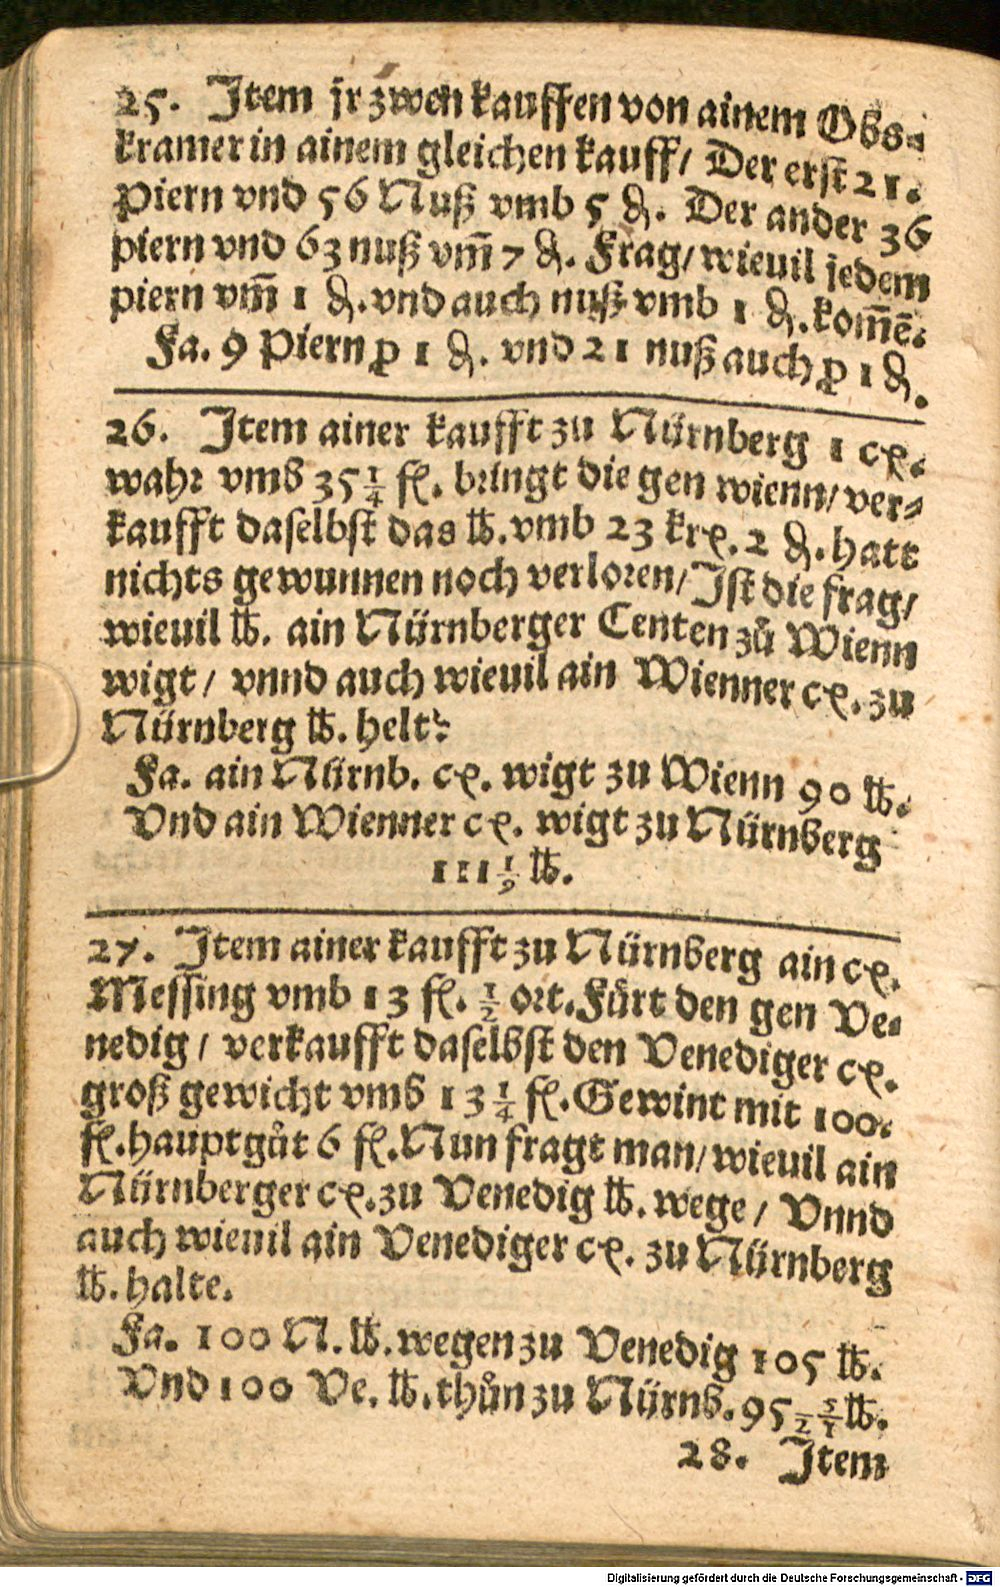 25. Item jr zwen kauffen von ainem Obs⸗
kramer in ainem gleichen kauff/ Der erst 21.
Piern vnd 56 Nuß vmb 5 ₰. Der ander 36
piern vnd 63 nuß vm̄ 7 ₰. Frag/ wieuil jedem
piern vm̄ 1 ₰. vnd auch nuß vmb 1 ₰. kom̄ē.
Fa. 9 Piern ꝓ 1 ₰. vnd 21 nuß auch ꝓ 1 ₰.
26. Item ainer kaufft zu Nürnberg 1 cꝫ.
wahr vmb 35 1/4 fl. bringt die gen wienn/ ver⸗
kaufft daselbst das ℔. vmb 23 krꝫ. 2 ₰. hatt
nichts gewunnen noch verloren/ Ist die frag/
wieuil ℔. ain Nürnberger Centen zů Wienn
wigt/ vnnd auch wieuil ain Wienner cꝫ. zu
Nürnberg ℔. helt?
Fa. ain Nürnb. cꝫ. wigt zu Wienn 90 ℔.
Vnd ain Wienner cꝫ. wigt zu Nürnberg
111 1/9 ℔.
27. Item ainer kaufft zu Nürnberg ain cꝫ.
Messing vmb 13 fl. 1/2 ort. Fürt den gen Ve⸗
nedig/ verkaufft daselbst den Venediger cꝫ.
groß gewicht vmb 13 1/4 fl. Gewint mit 100.
fl. hauptgůt 6 fl. Nun fragt man/ wieuil ain
Nürnberger cꝫ. zu Venedig ℔. wege/ Vnnd
auch wieuil ain Venediger cꝫ. zu Nürnberg
℔. halte.
Fa. 100 N. ℔. wegen zu Venedig 105 ℔.
Vnd 100 Ve. ℔. thůn zu Nürnb. 95 5/21 ℔.
28. Item
Digitalisierung gefördert durch die Deutsche Forschungsgemeinschaft - DFG